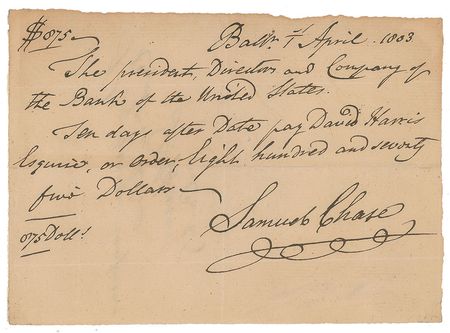 $875 Balt. 7th April 1803
The president, Directors and Company of
the Bank of the United States.
Ten days after Date pay David Harris
Esquire, or Order, Eight hundred and seventy
five Dollars
875 Doll.s
Samuel Chase